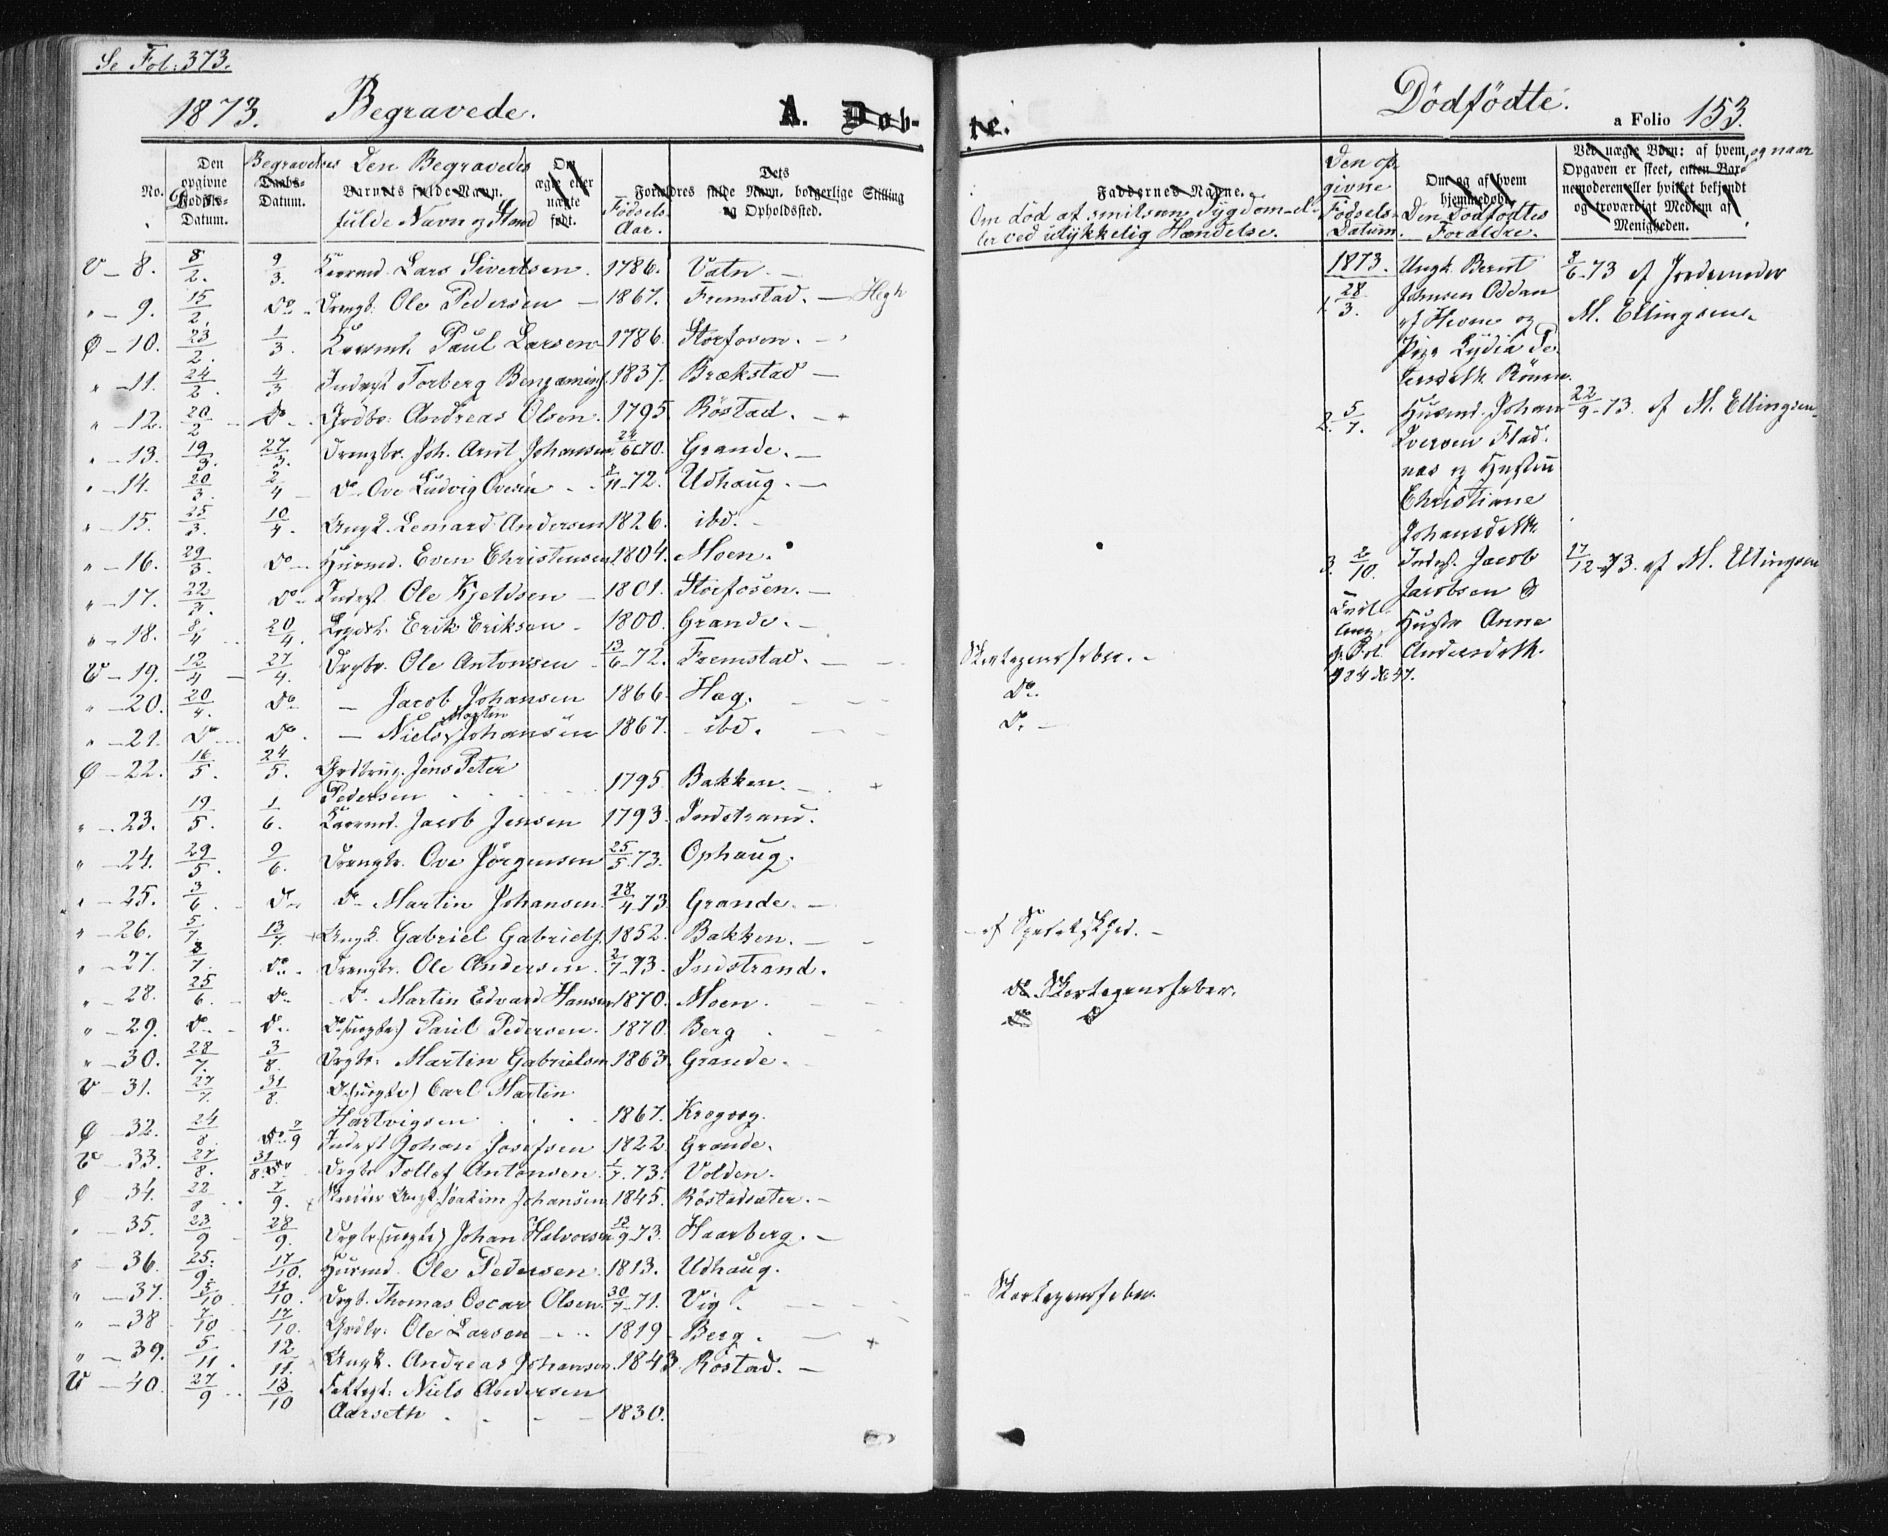 Se Fol: 373.
1873. Begravede. A. Døb-
No. Den opgivne Døds- Datum. Begravelses Datum. Den Begravedes fulde Navn og Stand Fødsels Aar. Opholdssted.
V - 8. 8/2. 9/3. Kaarmd. Lars Sivertsen. 1786. Vatn. -
" - 9. 15/2. Do - Drengb: Ole Pedersen - 1867. Fremstad. -
Ø - 10. 23/2. 1/3. Kaarmd. Paul Larsen 1786. Storfosen. -
" - 11. 24/2. 4/3 Inderst Torberg Benjamins. 1837. Brækstad -
" - 12. 20/2 Do. Grdbr: Andreas Olsen. 1795. Röstad. -
" - 13. 19/3. 27/3. Drengbr. Joh. Arnt Johansen 24/6 70. Grande. -
" - 14. 20/3. 2/4 - Do. Ove Ludvig Ovesen - 8/11-72. Udhaug. -
" - 15. 25/3. 10/4. Ungk. Lenard Andersen 1826. ibd. -
" - 16. 29/3. Do - Huusmd. Even Christensen 1804. Moen.
" - 17. 22/3. Do - Inderst Ole Kjeldsen - 1801. Storfosen. -
" - 18. 8/4 20/4. Erik Eriksen - 1800. Grande. -
V - 19. 12/4 27/4. Drgbr. Ole Antonsen - 13/6-72. Fremstad. -
" - 20. 20/4. Do - Jacob Johansen 1866. Hag.
" - 21. Do Do. - Niels Martin Johansen 1867. ibd.
Ø - 22. 16/5. 24/5. Grdbrug. Jens Peter
Pedersen 1795 Bakken. -
" - 23. 19/5. 1/6. Kaarmd. Jacob Jensen 1793. Indstrand.
" - 24. 29/5. 9/6. Drengbr. Ove Jörgensen 25/5.73. Ophaug.
" - 25. 3/6. Do. Do Martin Johansen. 28/4-73 Grande. -
" - 26. 5/7. 13/7. Ungk. Gabriel Gabriels. 1852. Bakken. -
" - 27. 8/7. Do. - Drengbr. Ole Andersen. 2/7-73. Indstrand.
" - 28. 25/6. Do. Do. Martin Edvard Hansen 1870. Moen.
" - 29. Do. - Do. Do (uægte) Paul Pedersen. 1870. Berg
" - 30. 28/7. 3/8. Drgbr: Martin Gabrielsen 1863. Grande.
V - 31. 27/7. 31/8. Do (uægte) Carl Martin
Hartvigsen 1867. Krogvog.
Ø - 32. 24/8. 7/9 Inderst Johan Josefsen 1822. Grande.
V - 33. 27/8. 31/8. Drgbr Tollef Antonsen. 1/7.73. Volden.
Ø - 34. 22/8 7/9. Ungk. Joakim Johansen 1845. Röstadsæter. -
" - 35. 23/9 28/9. Drgbr (uægte) Johan Halvorsen 12/9 73. Haarberg. -
" - 36. 25/9. 17/10. Huusmd. Ole Pedersen. 1813. Udhaug.
" - 37. 5/10 11/10. Drgb. Thomas Oscar Olsen. 30/7-71. Vig.
" - 38 7/10 17/10. Grdbr: Ole Larsen - 1819 - Berg.
" - 39. 5/11. 12/11. Ungk. Andreas Johansen. 1843. Röstad. -
V - 40. 27/9 13/10 Niels Andersen
Aarseth 1830.
te. Dödfödte.
a Folio 153.
Om död af smitsom Sygdom el-
ler ved ulykkelig Hændelse.
Den op-
givne
Fødsels-
Datum.
Den Dödfödtes
Forældre.
Opgaven er skeet, og naar
Skarlagensfeber. -
Do.
Do. -
Do Skarlagensfeber.
Skarlagensfeber.
1873.
1. 28/3. Ungk. Bernt
Jensen Oddan
af Hevne og
Pige Lydia Pe-
dersdatr. Rönne.
8/6-73 af Jordemoder
M. Ellingsen.
2. 5/7. Huusmd. Johan
Iversen Flad-
nes og Hustru
Christiane
Johansdatr.
22/9-73. af M. Ellingsen.
3. 2/10. Inderst. Jacob
Jacobsen &
Hustr Anne
Andersdatr.
17/12-73. af M. Ellingsen
Tvil-
ling,